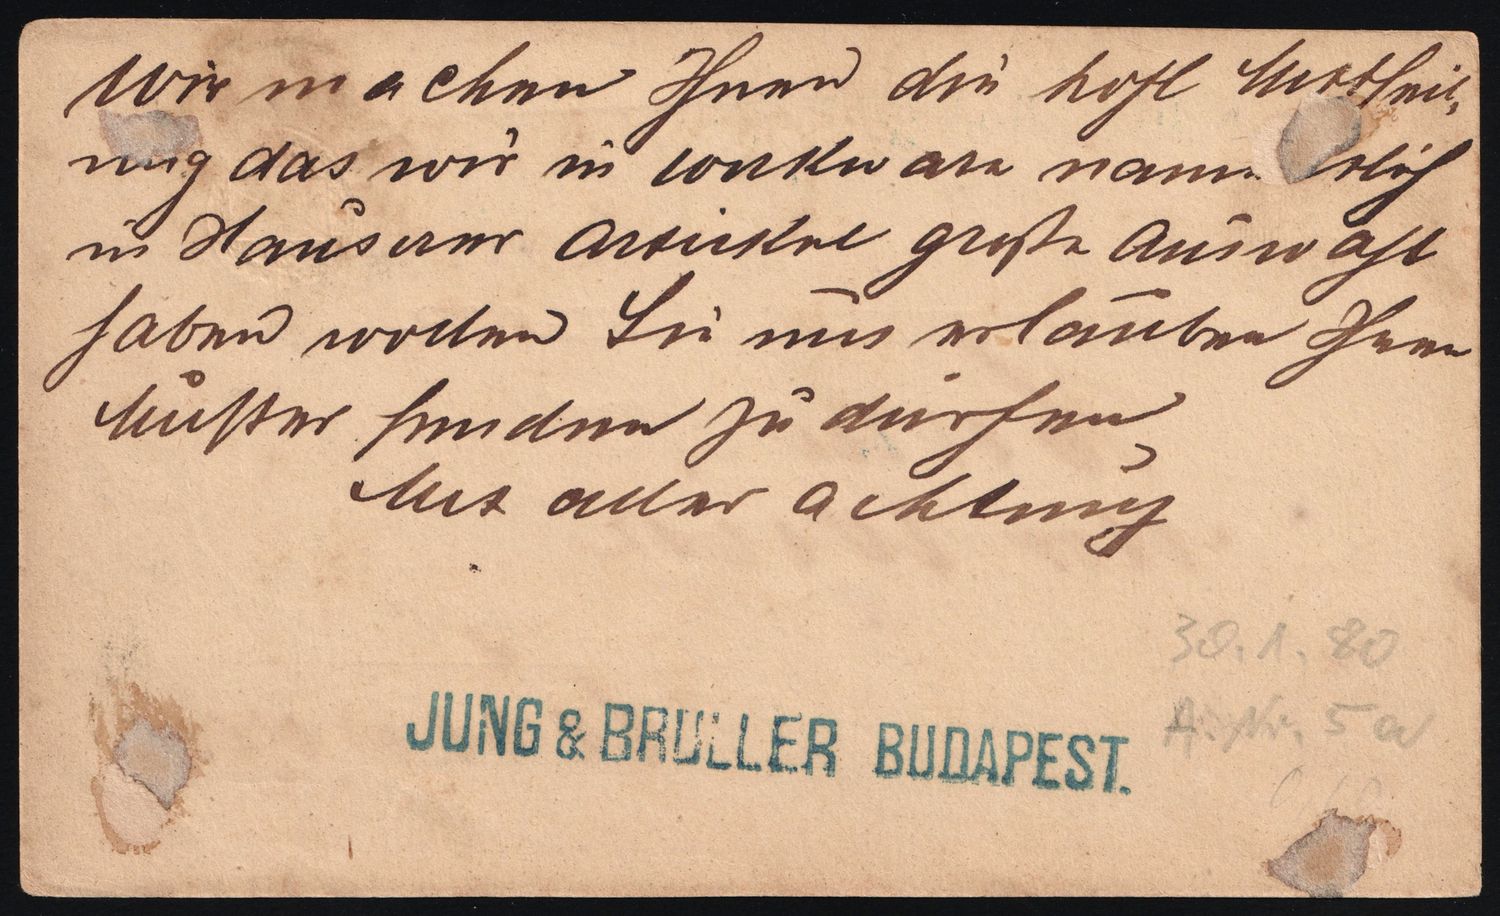 Wir machen Ihnen die höfl Mittheil-
ung das wir in workware namentlich
in Hauserer Artickel große Auswahl
haben wollen Sie uns erlauben Ihnen
Muster senden zu dürfen
Mit aller Achtung
JUNG & BRÜLLER BUDAPEST.
30.1.80
5